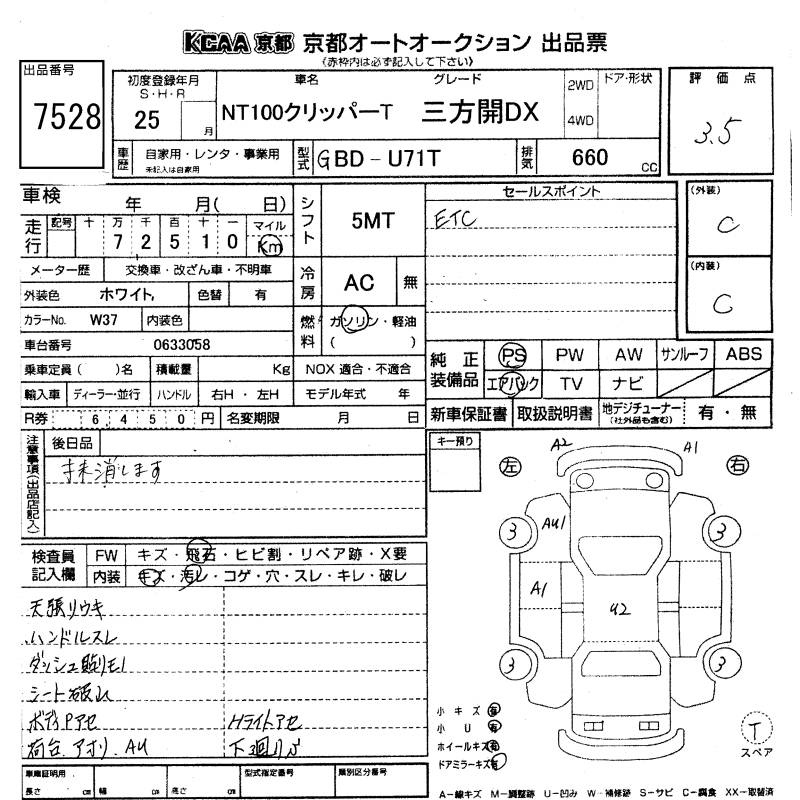 KCAA 京都 京都オートオークション 出品票
(赤枠内は必ず記入して下さい)
出品番号
7528
初度登録年月
S・H・R
25 月
車名 グレード
NT100クリッパーT 三方開DX
2WD
4WD
ドア・形状
評価点
3.5
車歴 自家用・レンタ・事業用
未記入は自家用
型式 GBD-U71T
排気 660 CC
車検 年 月( 日)
走行 記号 十 万 千 百 十 一 マイル
7 2 5 1 0 Km
シフト 5MT
セールスポイント
ETC
(外装)
C
(内装)
C
メーター歴 交換車・改ざん車・不明車
冷房 AC 無
外装色 ホワイト, 色替 有
カラーNo. W37 内装色
燃料 ガソリン・軽油
( )
車台番号 0633058
乗車定員( )名 積載量 Kg NOX 適合・不適合
輸入車 ディーラー・並行 ハンドル 右H・左H モデル年式 年
R券 6 4 5 0 円 名変期限 月 日
純正装備品 PS PW AW サンルーフ ABS
エアバック TV ナビ
新車保証書 取扱説明書 地デジチューナー(社外品も含む) 有・無
注意事項(出品店記入)
後日品
抹消します
キー預り
左 右
A2 A1
3 AU1 3
A1 U2
3 3
検査員記入欄
FW キズ・飛石・ヒビ割・リペア跡・X要
内装 キズ・汚レ・コゲ・穴・スレ・キレ・破レ
天張リウキ
ハンドルスレ
ダッシュ貼リモノ
シート破レ
ボディPアセ Hライトアセ
荷台、アオリ、AU 下廻りS
小キズ 有
小U 有
ホイールキズ 有
ドアミラーキズ 有
T
スペア
車庫証明用 長さ cm 幅 cm 高さ cm 型式指定番号 類別区分番号
A-線キズ M-調整跡 U-凹み W-補修跡 S-サビ C-腐食 XX-取替済